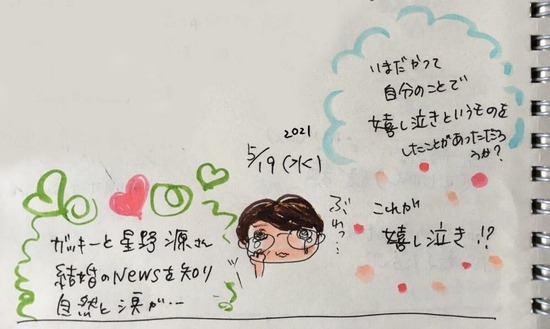 2021
5/19(水)
ガッキーと星野源さん
結婚のNewsを知り
自然と涙が…
ぶわっ…
いまだかつて
自分のことで
嬉し泣きというものを
したことがあっただろ
うか?
これが
嬉し泣き!?